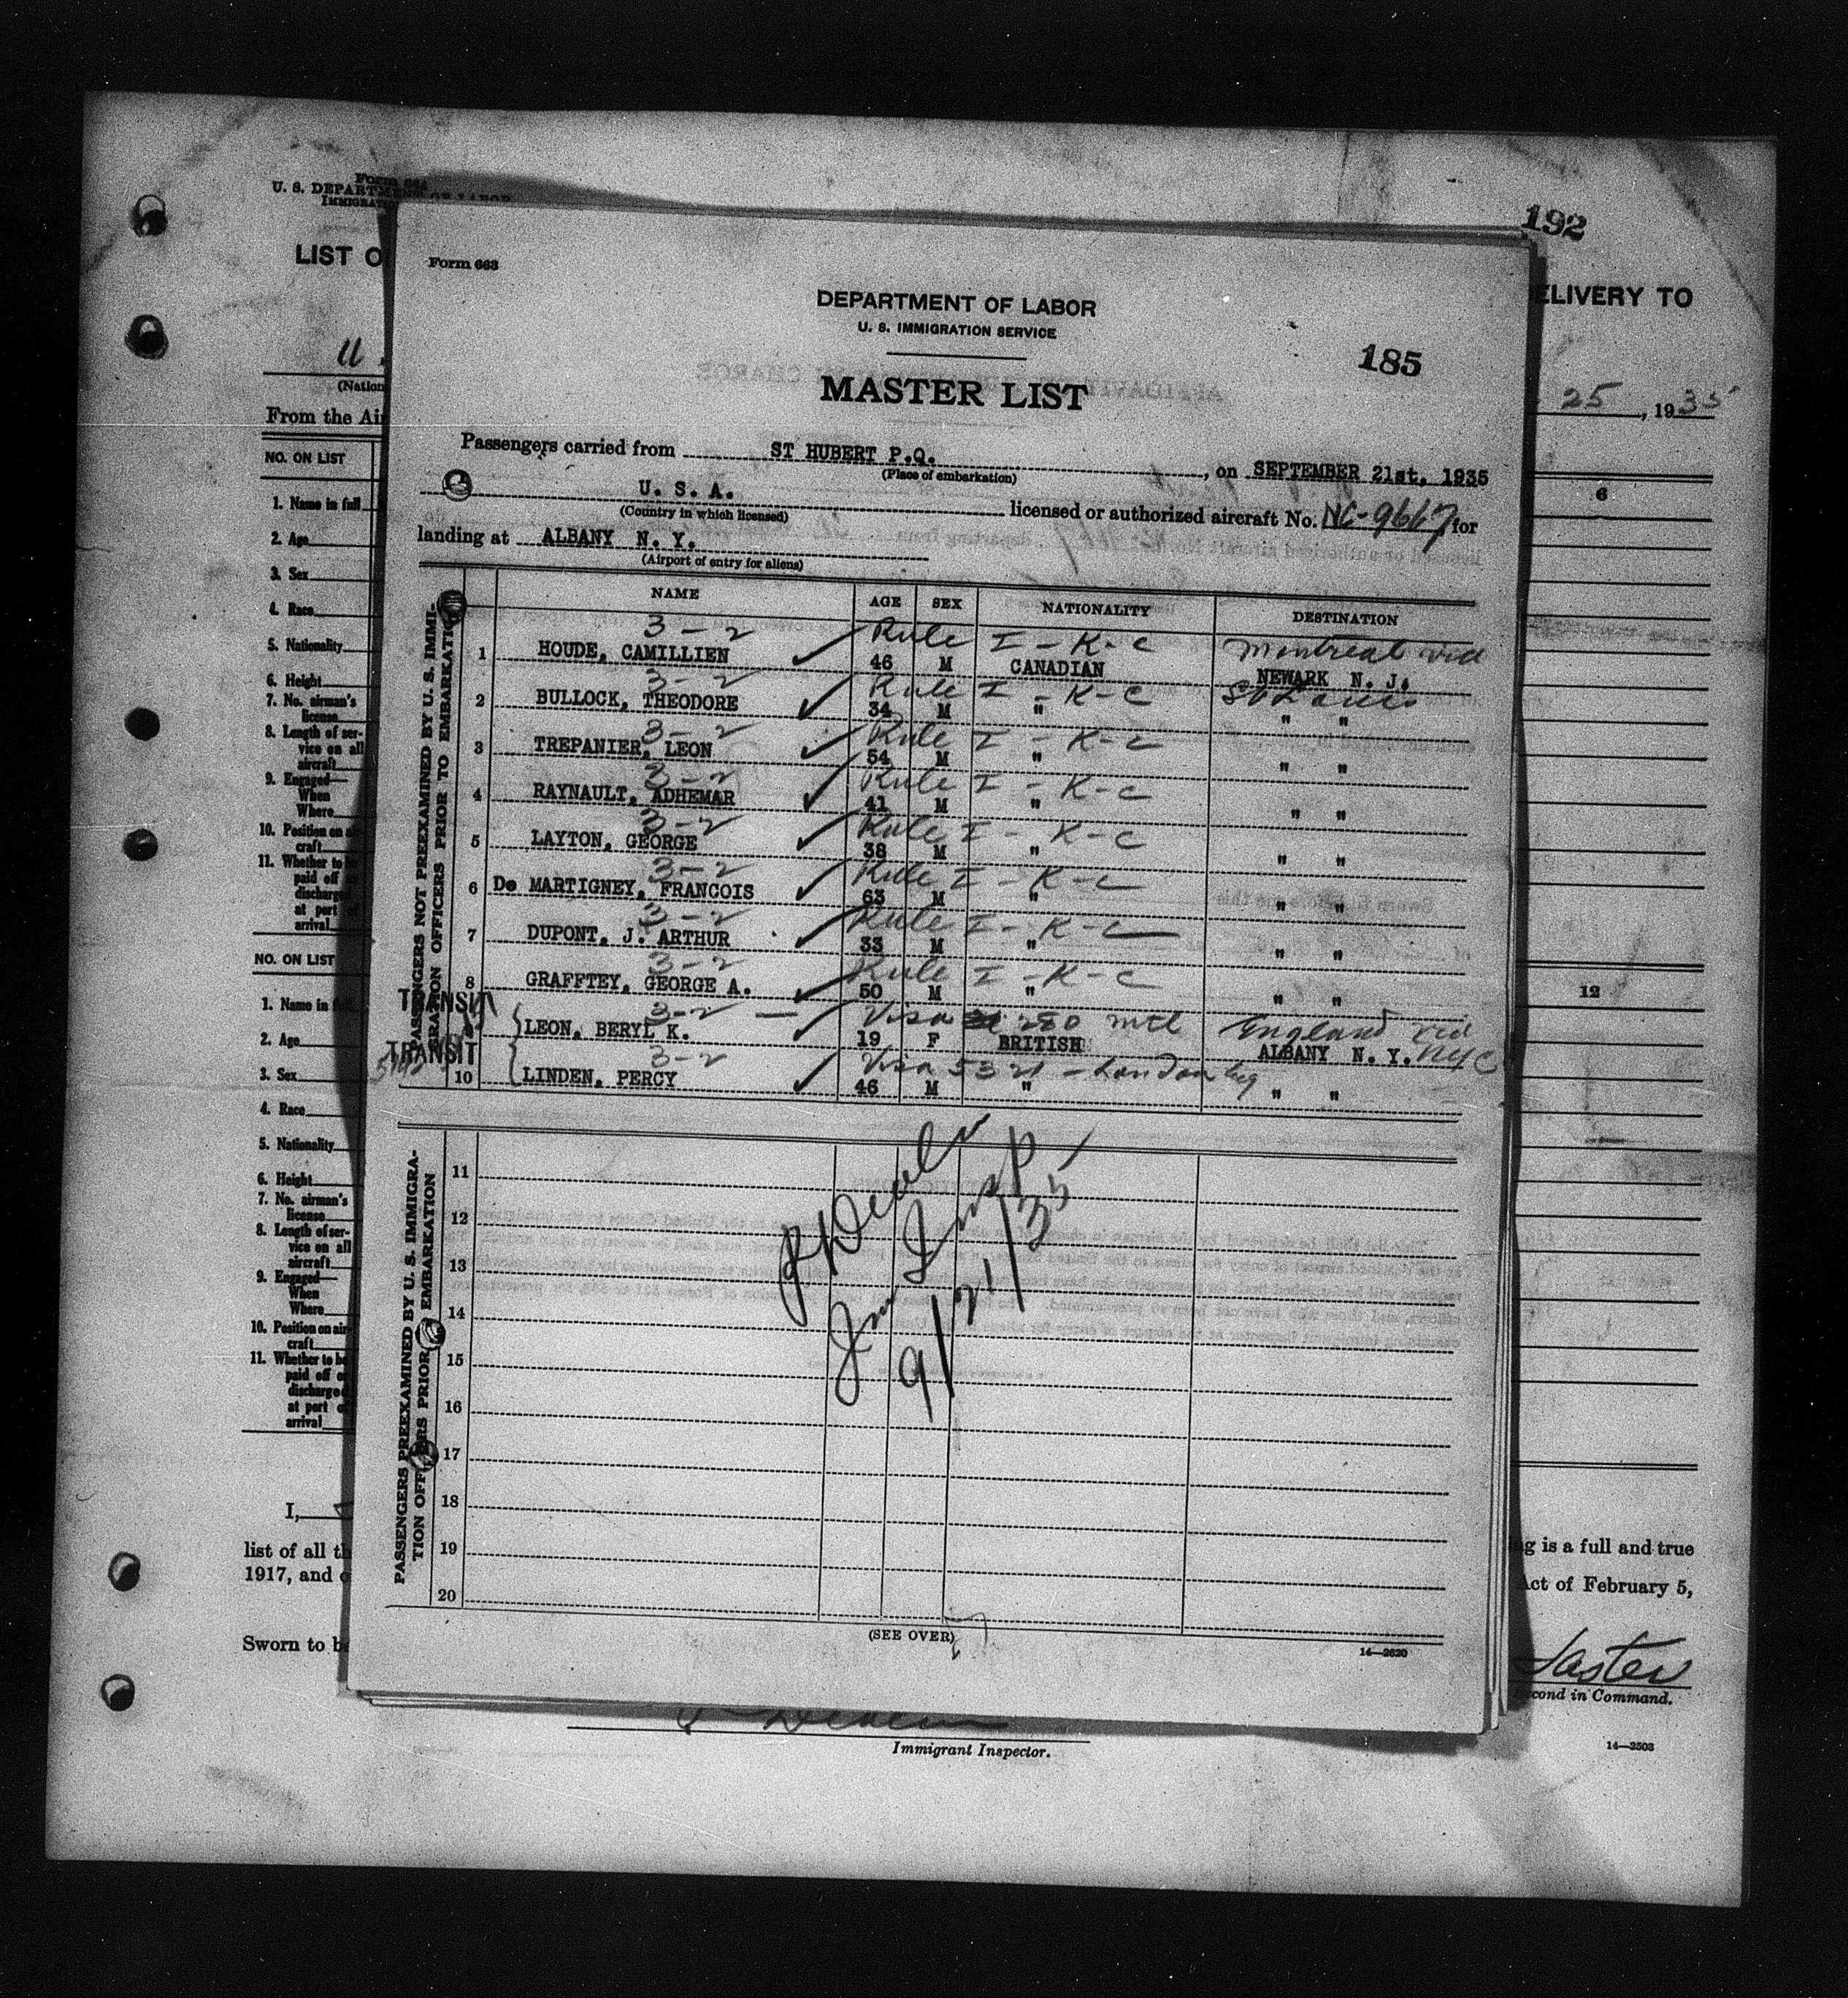 Form 664
U. S. DEPARTMENT OF LABOR
IMMIGRAT
192
LIST O
ELIVERY TO
Form 663
DEPARTMENT OF LABOR
U. S. IMMIGRATION SERVICE
185
MASTER LIST
U.
(Nation
25, 1935
From the Air
Passengers carried from ST HUBERT P.Q., on SEPTEMBER 21st, 1935
(Place of embarkation)
U. S. A. licensed or authorized aircraft No. NC-9667 for
(Country in which licensed)
landing at ALBANY N. Y.
(Airport of entry for aliens)
PASSENGERS NOT PREEXAMINED BY U. S. IMMI-
GRATION OFFICERS PRIOR TO EMBARKATION
NAME AGE SEX NATIONALITY DESTINATION
3-2 Rule I - K-C Montreal via
1 HOUDE, CAMILLIEN 46 M CANADIAN NEWARK N. J.
3-2 Rule I - K-C St Louis
2 BULLOCK, THEODORE 34 M " " "
3-2 Rule I - K-C
3 TREPANIER, LEON 54 M " " "
3-2 Rule I - K-C
4 RAYNAULT, ADHEMAR 41 M " " "
3-2 Rule I - K-C
5 LAYTON, GEORGE 38 M " " "
3-2 Rule I - K-C
6 De MARTIGNEY, FRANCOIS 63 M " " "
3-2 Rule I - K-C
7 DUPONT, J. ARTHUR 33 M " " "
3-2 Rule I - K-C
8 GRAFFTEY, GEORGE A. 50 M " " "
TRANSIT 3-2 - Visa 280 mtl England via
9 LEON, BERYL K. 19 F BRITISH ALBANY N. Y. NYC
TRANSIT 3-2 Visa 5321 - London Eng
10 LINDEN, PERCY 46 M " " "
PASSENGERS PREEXAMINED BY U. S. IMMIGRA-
TION OFFICERS PRIOR EMBARKATION
11
12
13
14
15
16
17
18
19
20
Imm Insp
9/21/35
(SEE OVER)
14—2620
NO. ON LIST
1. Name in full
2. Age
3. Sex
4. Race
5. Nationality
6. Height
7. No. airman's
license
8. Length of ser-
vice on all
aircraft
9. Engaged—
When
Where
10. Position on a
craft
11. Whether to b
paid off o
discharge
at port o
arrival
NO. ON LIST
1. Name in f
2. Age
3. Sex
4. Race
5. Nationality
6. Height
7. No. airman's
license
8. Length of ser-
vice on all
aircraft
9. Engaged—
When
Where
10. Position on air-
craft
11. Whether to be
paid off o
discharged
at port o
arrival
6
12
I,
list of all th
1917, and o
Sworn to be
ng is a full and true
Act of February 5,
Second in Command.
Immigrant Inspector.
14—2503